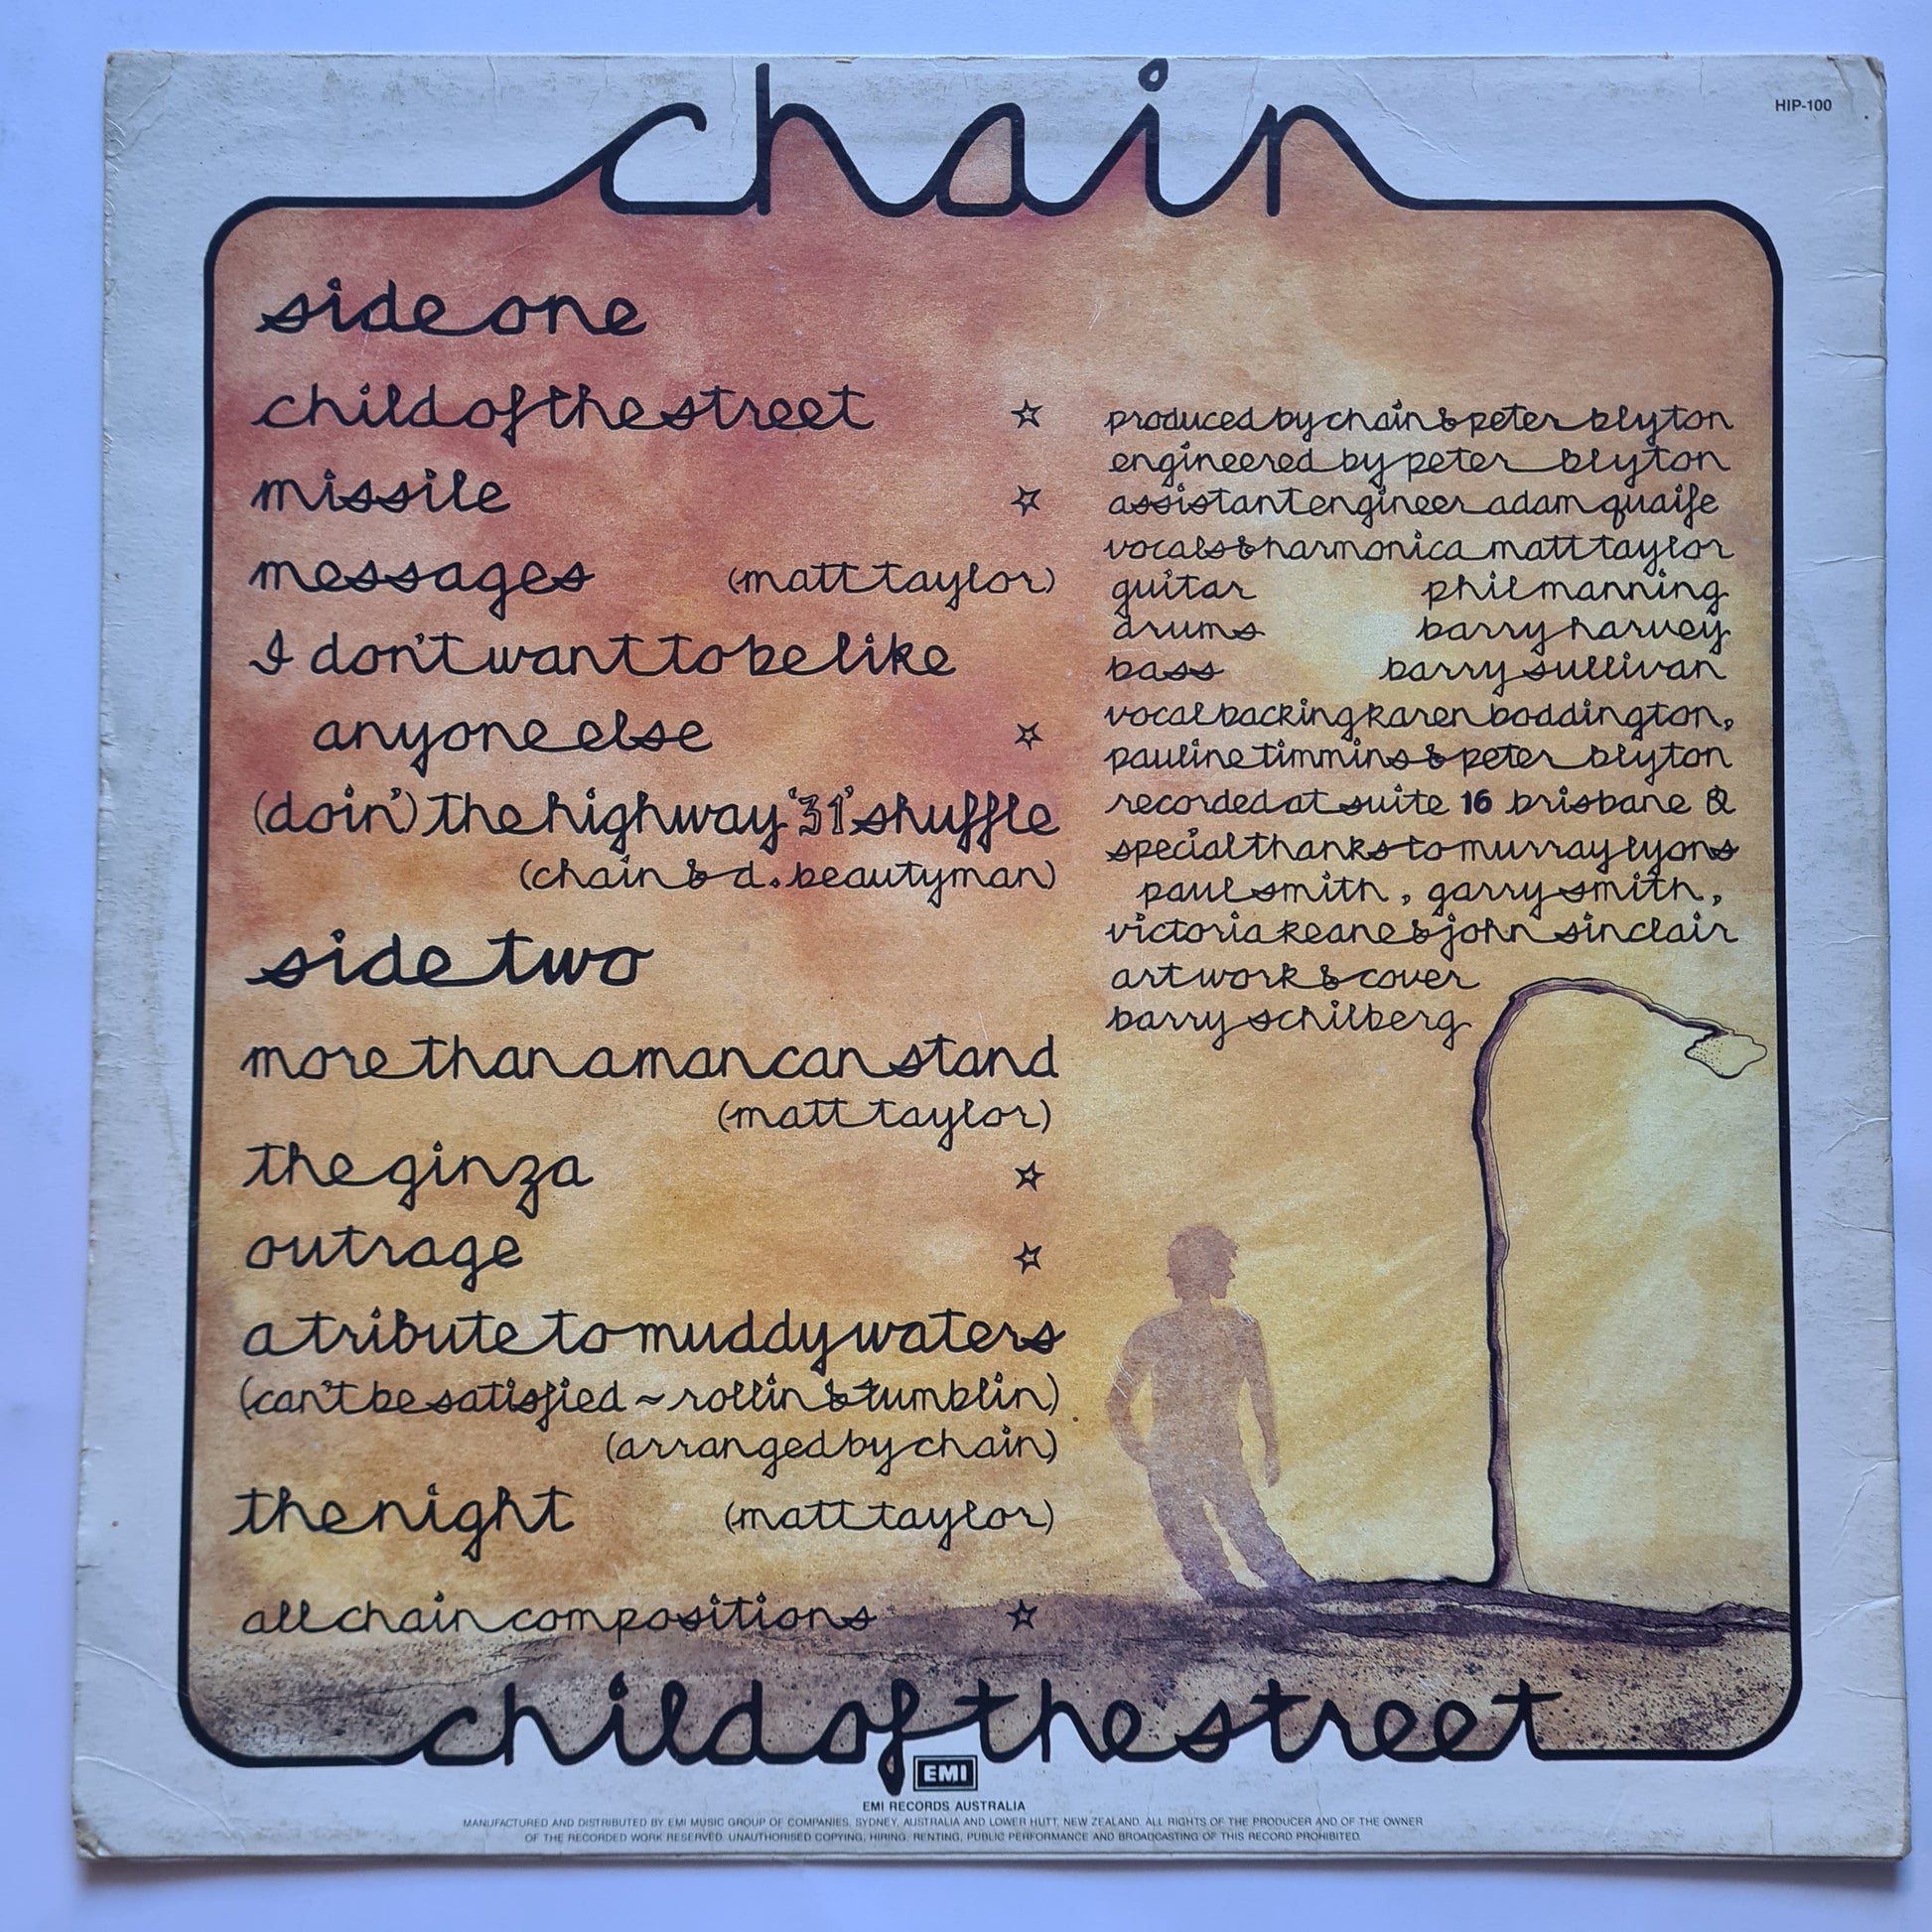 chain
HIP-100
side one
child of the street ☆
missile ☆
messages (matt taylor)
I don't want to be like
anyone else ☆
(doin') the highway '31' shuffle
(chain & d. beautyman)
side two
more than a man can stand
(matt taylor)
the ginza ☆
outrage ☆
a tribute to muddy waters
(can't be satisfied ~ rollin & tumblin)
(arranged by chain)
the night (matt taylor)
all chain compositions ☆
produced by chain & peter blyton
engineered by peter blyton
assistant engineer adam quaife
vocals & harmonica matt taylor
guitar phil manning
drums barry harvey
bass barry sullivan
vocal backing karen boddington,
pauline timmins & peter blyton
recorded at suite 16 brisbane Q
special thanks to murray lyons
paul smith, garry smith,
victoria keane & john sinclair
art work & cover
barry schilberg
child of the street
EMI
EMI RECORDS AUSTRALIA
MANUFACTURED AND DISTRIBUTED BY EMI MUSIC GROUP OF COMPANIES, SYDNEY, AUSTRALIA AND LOWER HUTT, NEW ZEALAND. ALL RIGHTS OF THE PRODUCER AND OF THE OWNER
OF THE RECORDED WORK RESERVED. UNAUTHORISED COPYING, HIRING, RENTING, PUBLIC PERFORMANCE AND BROADCASTING OF THIS RECORD PROHIBITED.